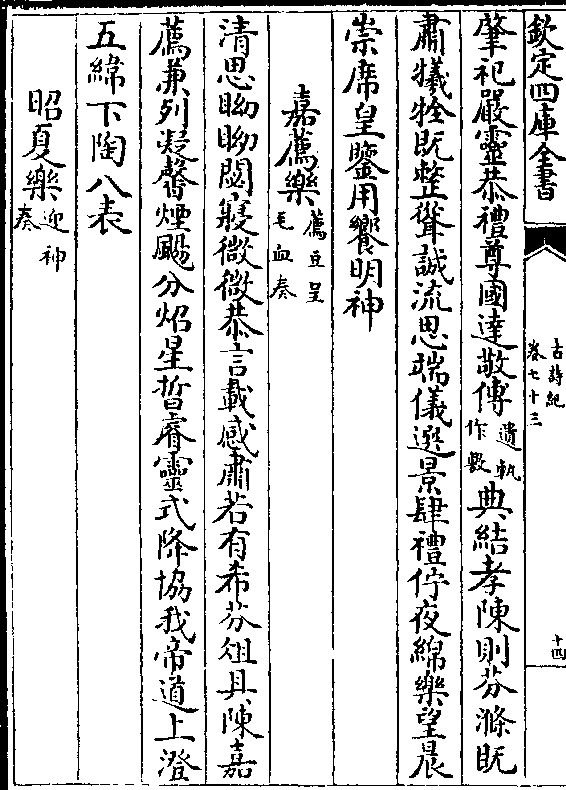 欽定四庫全書
古詩紀
卷七十三
十四
肇祀嚴靈恭禮尊國達敬傳遺軌作數典結孝陳則芬滌旣
肅犧牷旣整聳誠流思端儀選景肆禮佇夜綿樂望晨
崇席皇鑒用饗明神
嘉薦樂薦豆呈毛血奏
清思眑眑閟寢微微恭言載感肅若有希芬俎具陳嘉
薦兼列凝馨煙颺分炤星晢睿靈式降協我帝道上澄
五緯下陶八表
昭夏樂迎神奏